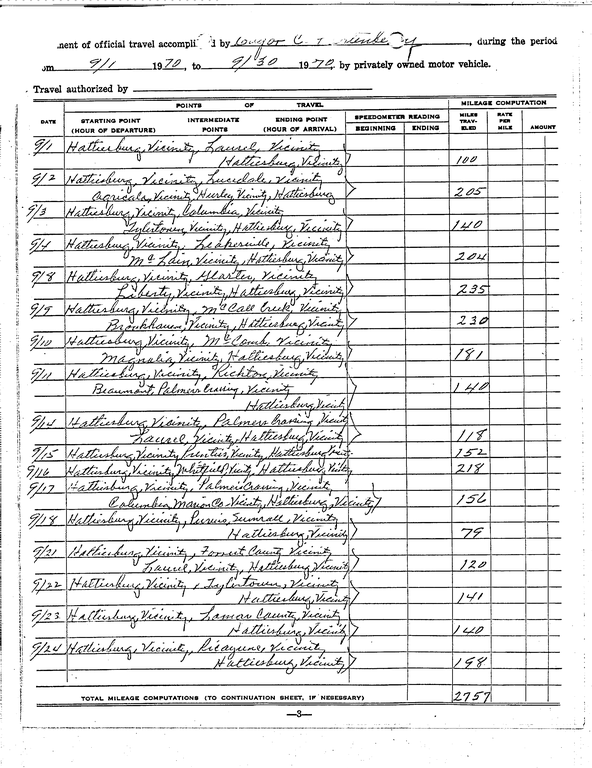 nent of official travel accompli d by C. , during the period
om 9/1 1970, to 9/30 1970, by privately owned motor vehicle.
Travel authorized by
POINTS OF TRAVEL MILEAGE COMPUTATION
DATE STARTING POINT (HOUR OF DEPARTURE) INTERMEDIATE POINTS ENDING POINT (HOUR OF ARRIVAL) SPEEDOMETER READING BEGINNING ENDING MILES TRAV- ELED RATE PER MILE AMOUNT
9/1 Hattiesburg, Vicinity, Laurel, Vicinity
Hattiesburg, Vicinity 100
9/2 Hattiesburg, Vicinity, Lucedale, Vicinity
Agricola, Vicinity, Hurley, Vicinity, Hattiesburg 205
9/3 Hattiesburg, Vicinity, Columbia, Vicinity
Tylertown, Vicinity, Hattiesburg, Vicinity 140
9/4 Hattiesburg, Vicinity, Leakesville, Vicinity
McLain, Vicinity, Hattiesburg, Vicinity 204
9/8 Hattiesburg, Vicinity, Gloster, Vicinity
Liberty, Vicinity, Hattiesburg, Vicinity 235
9/9 Hattiesburg, Vicinity, McCall Creek, Vicinity
Brookhaven, Vicinity, Hattiesburg, Vicinity 230
9/10 Hattiesburg Vicinity, McComb, Vicinity
Magnolia, Vicinity, Hattiesburg, Vicinity 181
9/11 Hattiesburg, Vicinity, Richton, Vicinity
Beaumont, Palmers Crossing, Vicinity 140
Hattiesburg, Vicinity
9/14 Hattiesburg, Vicinity, Palmers Crossing, Vicinity
Laurel, Vicinity, Hattiesburg, Vicinity 118
9/15 Hattiesburg, Vicinity, Prentiss, Vicinity, Hattiesburg, 152
9/16 Hattiesburg, Vicinity, Whitfield, Vicinity, Hattiesburg, Vicinity 218
9/17 Hattiesburg, Vicinity, Palmers Crossing, Vicinity,
Columbia, Marion Co. Vicinity, Hattiesburg, Vicinity 156
9/18 Hattiesburg, Vicinity, Purvis, Sumrall, Vicinity
Hattiesburg, Vicinity 79
9/21 Hattiesburg, Vicinity, Forrest County, Vicinity
Laurel, Vicinity, Hattiesburg, Vicinity 120
9/22 Hattiesburg, Vicinity, Tylertown, Vicinity
Hattiesburg, Vicinity 141
9/23 Hattiesburg, Vicinity, Lamar County, Vicinity
Hattiesburg, Vicinity 140
9/24 Hattiesburg, Vicinity, Picayune, Vicinity
Hattiesburg, Vicinity 198
TOTAL MILEAGE COMPUTATIONS (TO CONTINUATION SHEET, IF NESESSARY) 2757
—3—